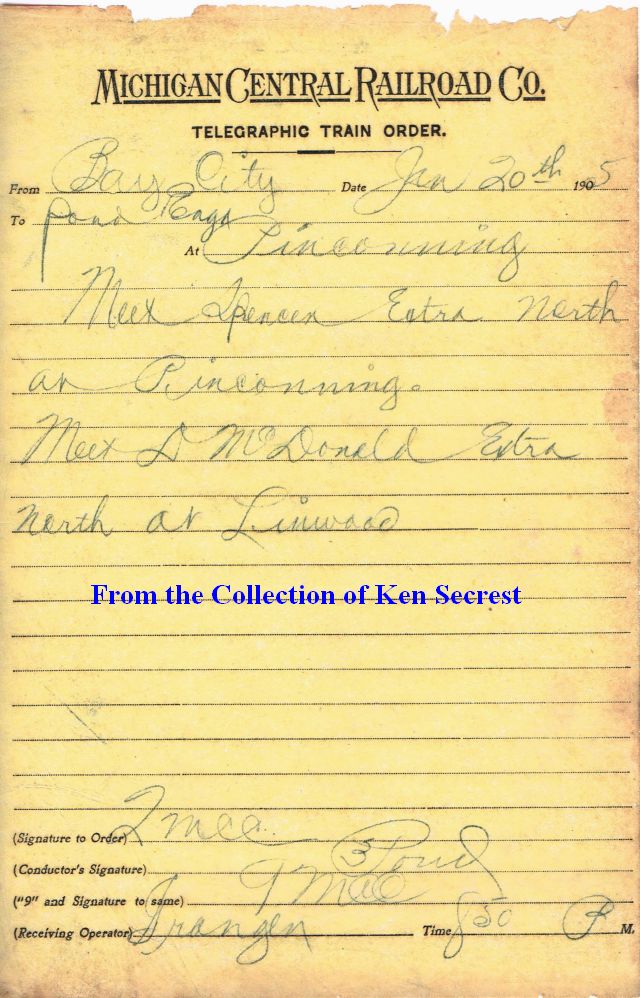 MICHIGAN CENTRAL RAILROAD CO.
TELEGRAPHIC TRAIN ORDER.
From Bay City Date Jan 20th 1905
To Pond Engr
At Pinconning
Meet Spencer Extra North
at Pinconning.
Meet D McDonald Extra
North at Linwood
From the Collection of Ken Secrest
(Signature to Order)
(Conductor's Signature) Pond
("9" and Signature to same)
(Receiving Operator) Time 8 50 P M.